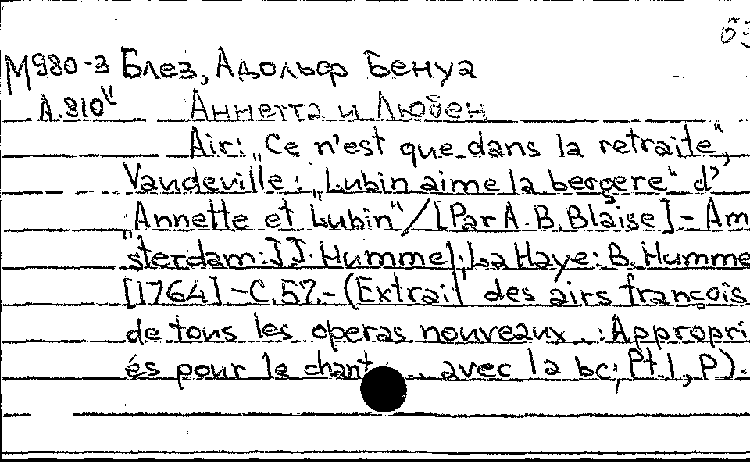 М980-3 Блез, Адольф Бенуа
А.810" Аннетта и Любен
Air: „Ce n'est que dans la retraite",
Vaudeville: „Lubin aime la bergere" d'
„Annette et Lubin" / [Par A. B. Blaise] - Am
sterdam: J J. Hummel; La Haye: B. Humme
[1764] - C. 57. - (Extrait des airs françois
de tous les operas nouveaux...: Appropri
és pour le chant... avec la bc; Pt. 1, P).